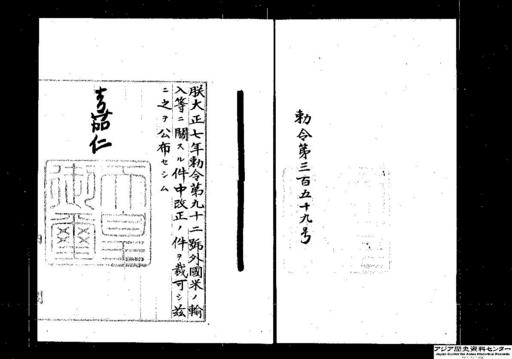 勅令第三百五十九号
朕大正七年勅令第九十二號外國米ノ輸
入等ニ關スル件中改正ノ件ヲ裁可シ茲
ニ之ヲ公布セシム
嘉仁
アジア歴史資料センター
Japan Center for Asian Historical Records